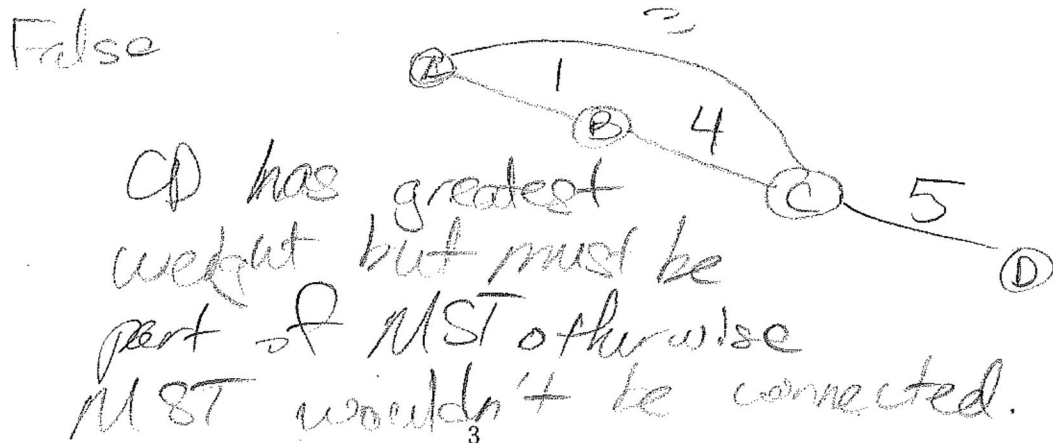 False
A
1
B
4
C
5
D
CD has greatest
weight but must be
part of MST otherwise
MST wouldn't be connected.
3